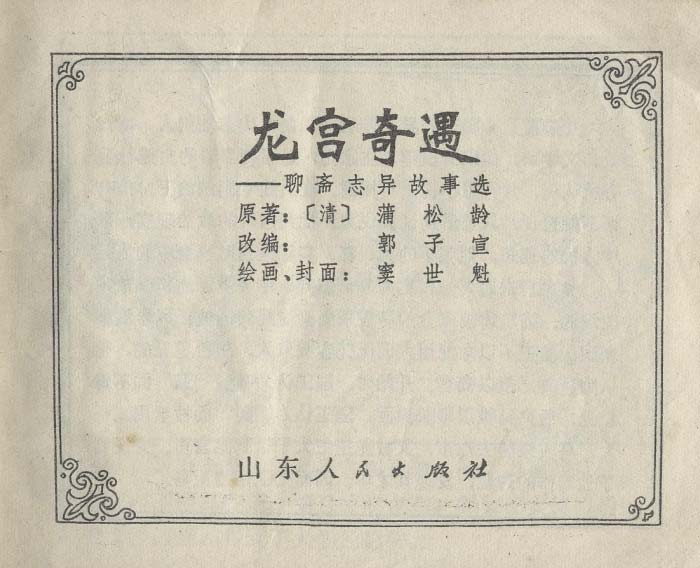 龙宫奇遇
——聊斋志异故事选
原著：〔清〕 蒲松龄
改编： 郭子宣
绘画、封面： 窦世魁
山东人民出版社